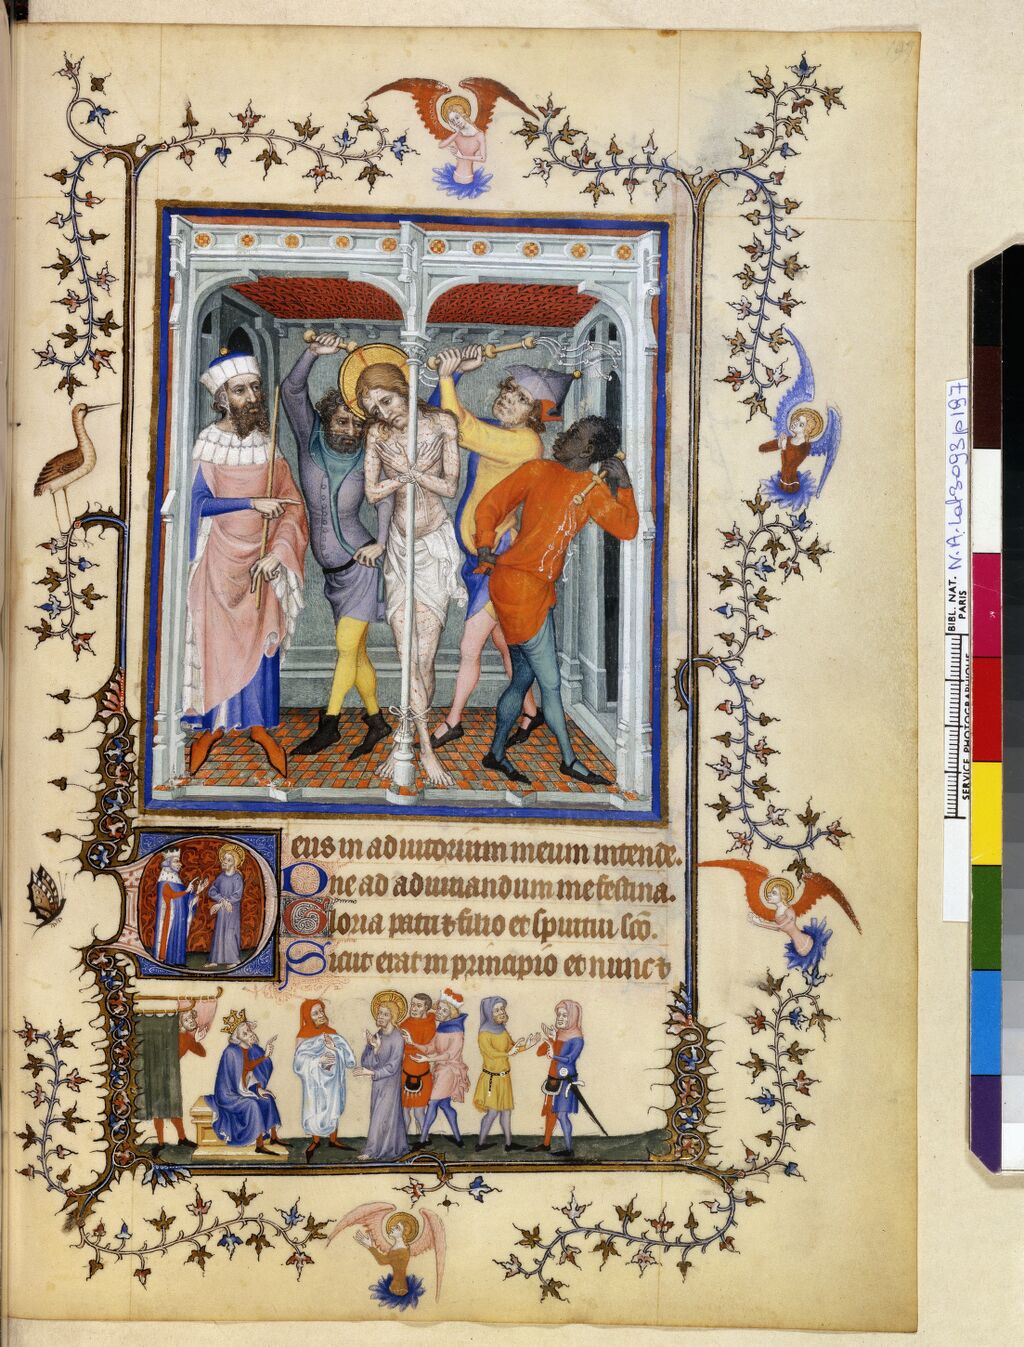 197
Deus in adiutorium meum intende.
Dne ad adiuuandum me festina.
Gloria patri & filio et spiritui sc̄o.
Sicut erat in principio et nunc &
N.A. Lat 3093 p 197
BIBL. NAT. PARIS
SERVICE PHOTOGRAPHIQUE